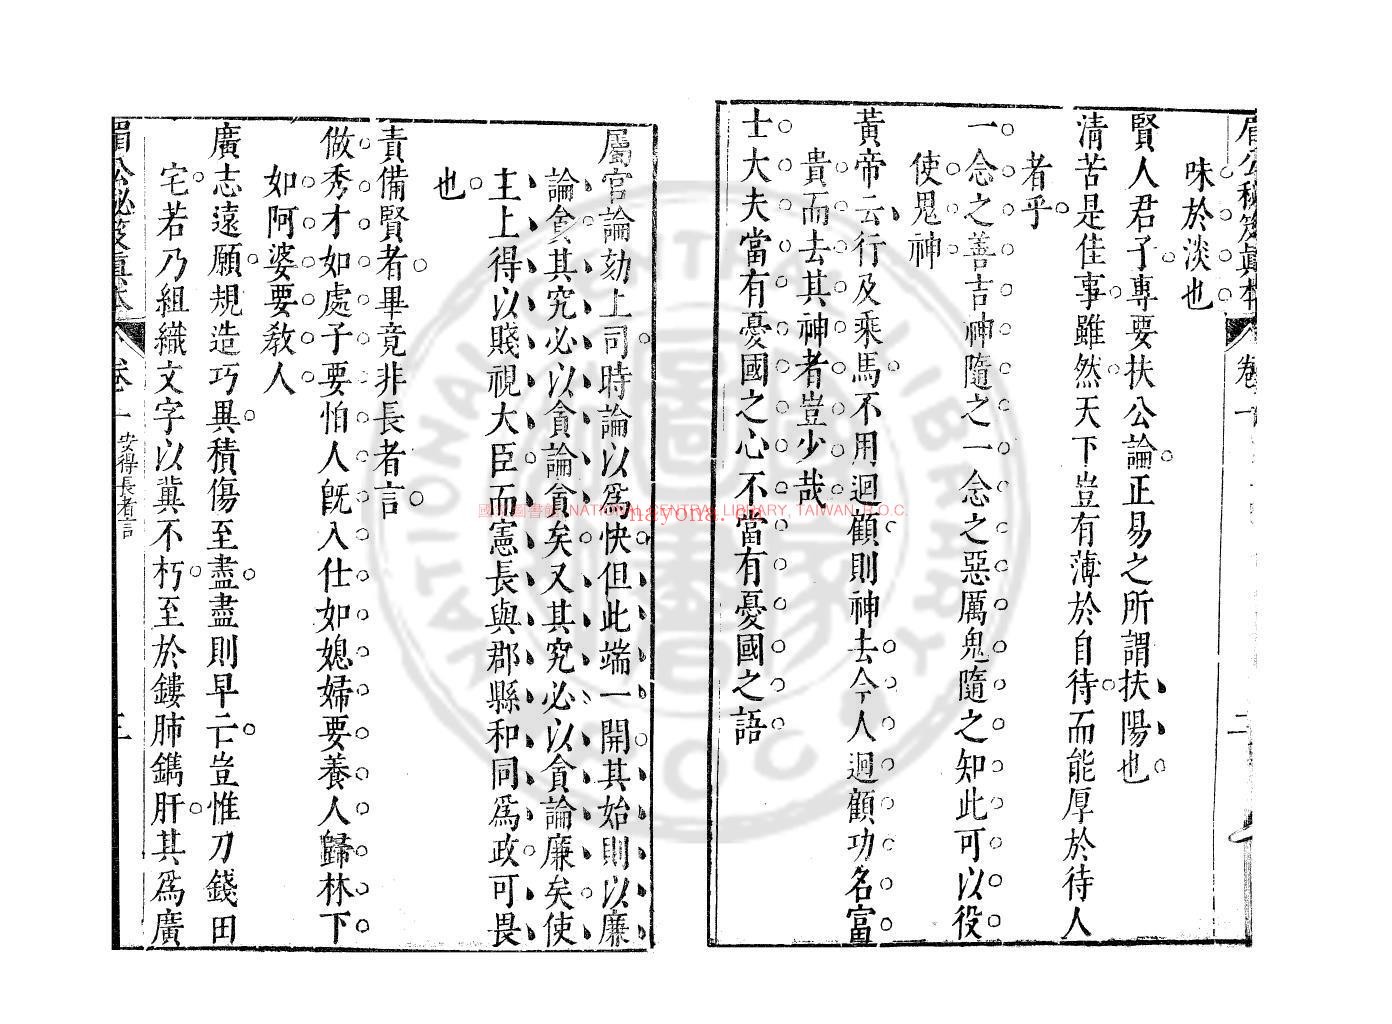 味於淡也
賢人君子專要扶公論正易之所謂扶陽也
清苦是佳事雖然天下豈有薄於自待而能厚於待人
者乎
一念之善吉神隨之一念之惡厲鬼隨之知此可以役
使鬼神
黃帝云行及乘馬不用迴顧則神去今人迴顧功名富
貴而去其神者豈少哉
士大夫當有憂國之心不當有憂國之語
屬官論劾上司時論以爲快但此端一開其始則以廉
論貪其究必以貪論貪矣又其究必以貪論廉矣使
主上得以賤視大臣而憲長與郡縣和同爲政可畏
也
責備賢者畢竟非長者言
做秀才如處子要怕人旣入仕如媳婦要養人歸林下
如阿婆要教人
廣志遠願規造巧異積傷至盡盡則早亡豈惟刀錢田
宅若乃組織文字以冀不朽至於鏤肺鐫肝其爲廣
眉公秘笈眞本 卷一 安得長者言 三
眉公秘笈眞本 卷一 二
國家圖書館 NATIONAL CENTRAL LIBRARY, TAIWAN, R.O.C.
nayona.